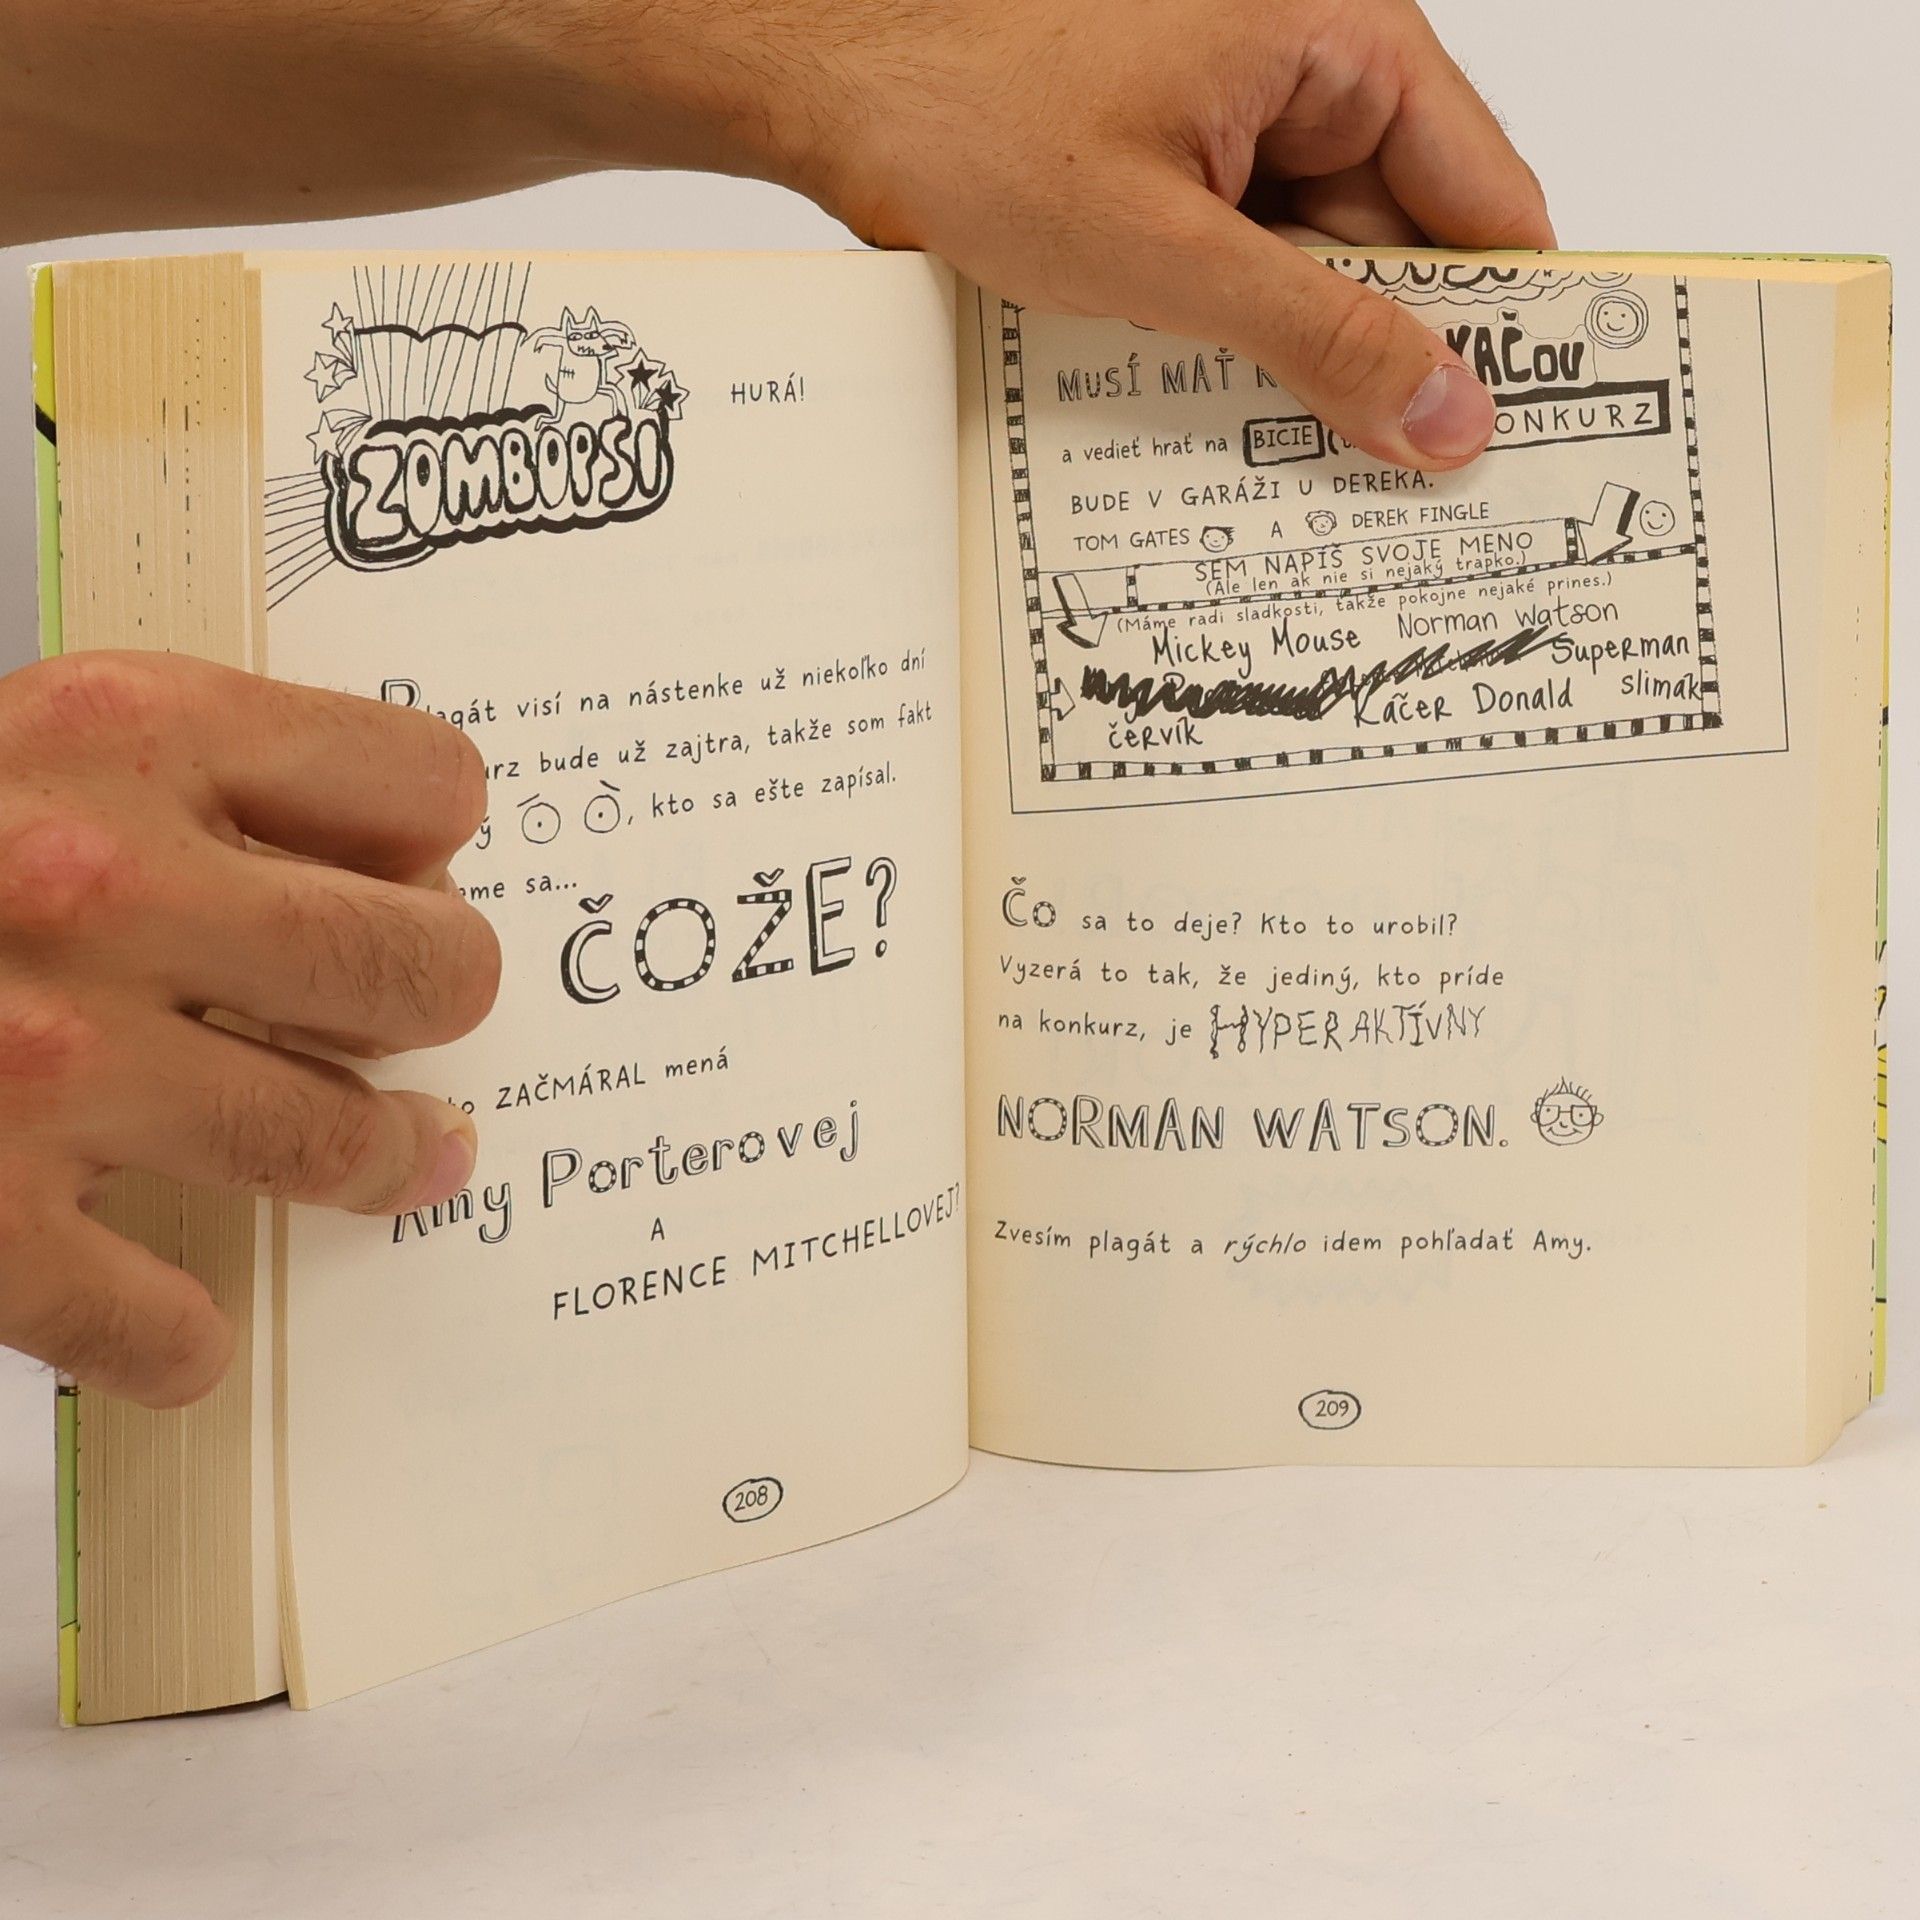 ZOMBOPSI
HURÁ!
visí na nástenke už niekoľko dní
bude už zajtra, takže som fakt
, kto sa ešte zapísal.
sa...
ČOŽE?
ZAČMÁRAL mená
Amy Porterovej
A
FLORENCE MITCHELLOVEJ?
208
MUSÍ MAŤ
a vedieť hrať na BICIE
BUDE V GARÁŽI U DEREKA.
TOM GATES A DEREK FINGLE
SEM NAPÍŠ SVOJE MENO
(Ale len ak nie si nejaký trapko.)
(Máme radi sladkosti, takže pokojne nejaké prines.)
Mickey Mouse Norman Watson
Superman
Káčer Donald slimák
červík
Čo sa to deje? Kto to urobil?
Vyzerá to tak, že jediný, kto príde
na konkurz, je HYPERAKTÍVNY
NORMAN WATSON.
Zvesím plagát a rýchlo idem pohľadať Amy.
209